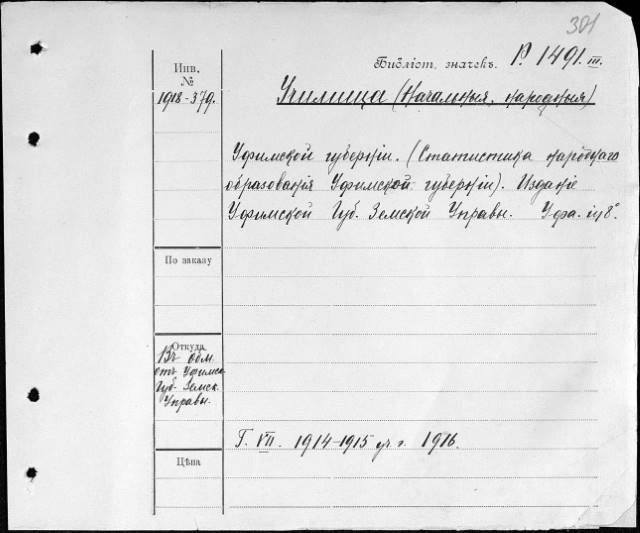 301
Библіот. значекъ. P. 1491. III.
Инв.
№
1918-379.
Училища (Начальныя, народныя)
Уфимской губерніи. (Статистика народнаго
образованія Уфимской губерніи). Изданіе
Уфимской Губ. Земской Управы. Уфа. in 8°
По заказу
Откуда
Въ обм.
отъ Уфимск.
Губ. Земск.
Управы.
Г. VII. 1914-1915 уч. г. 1916.
Цѣна